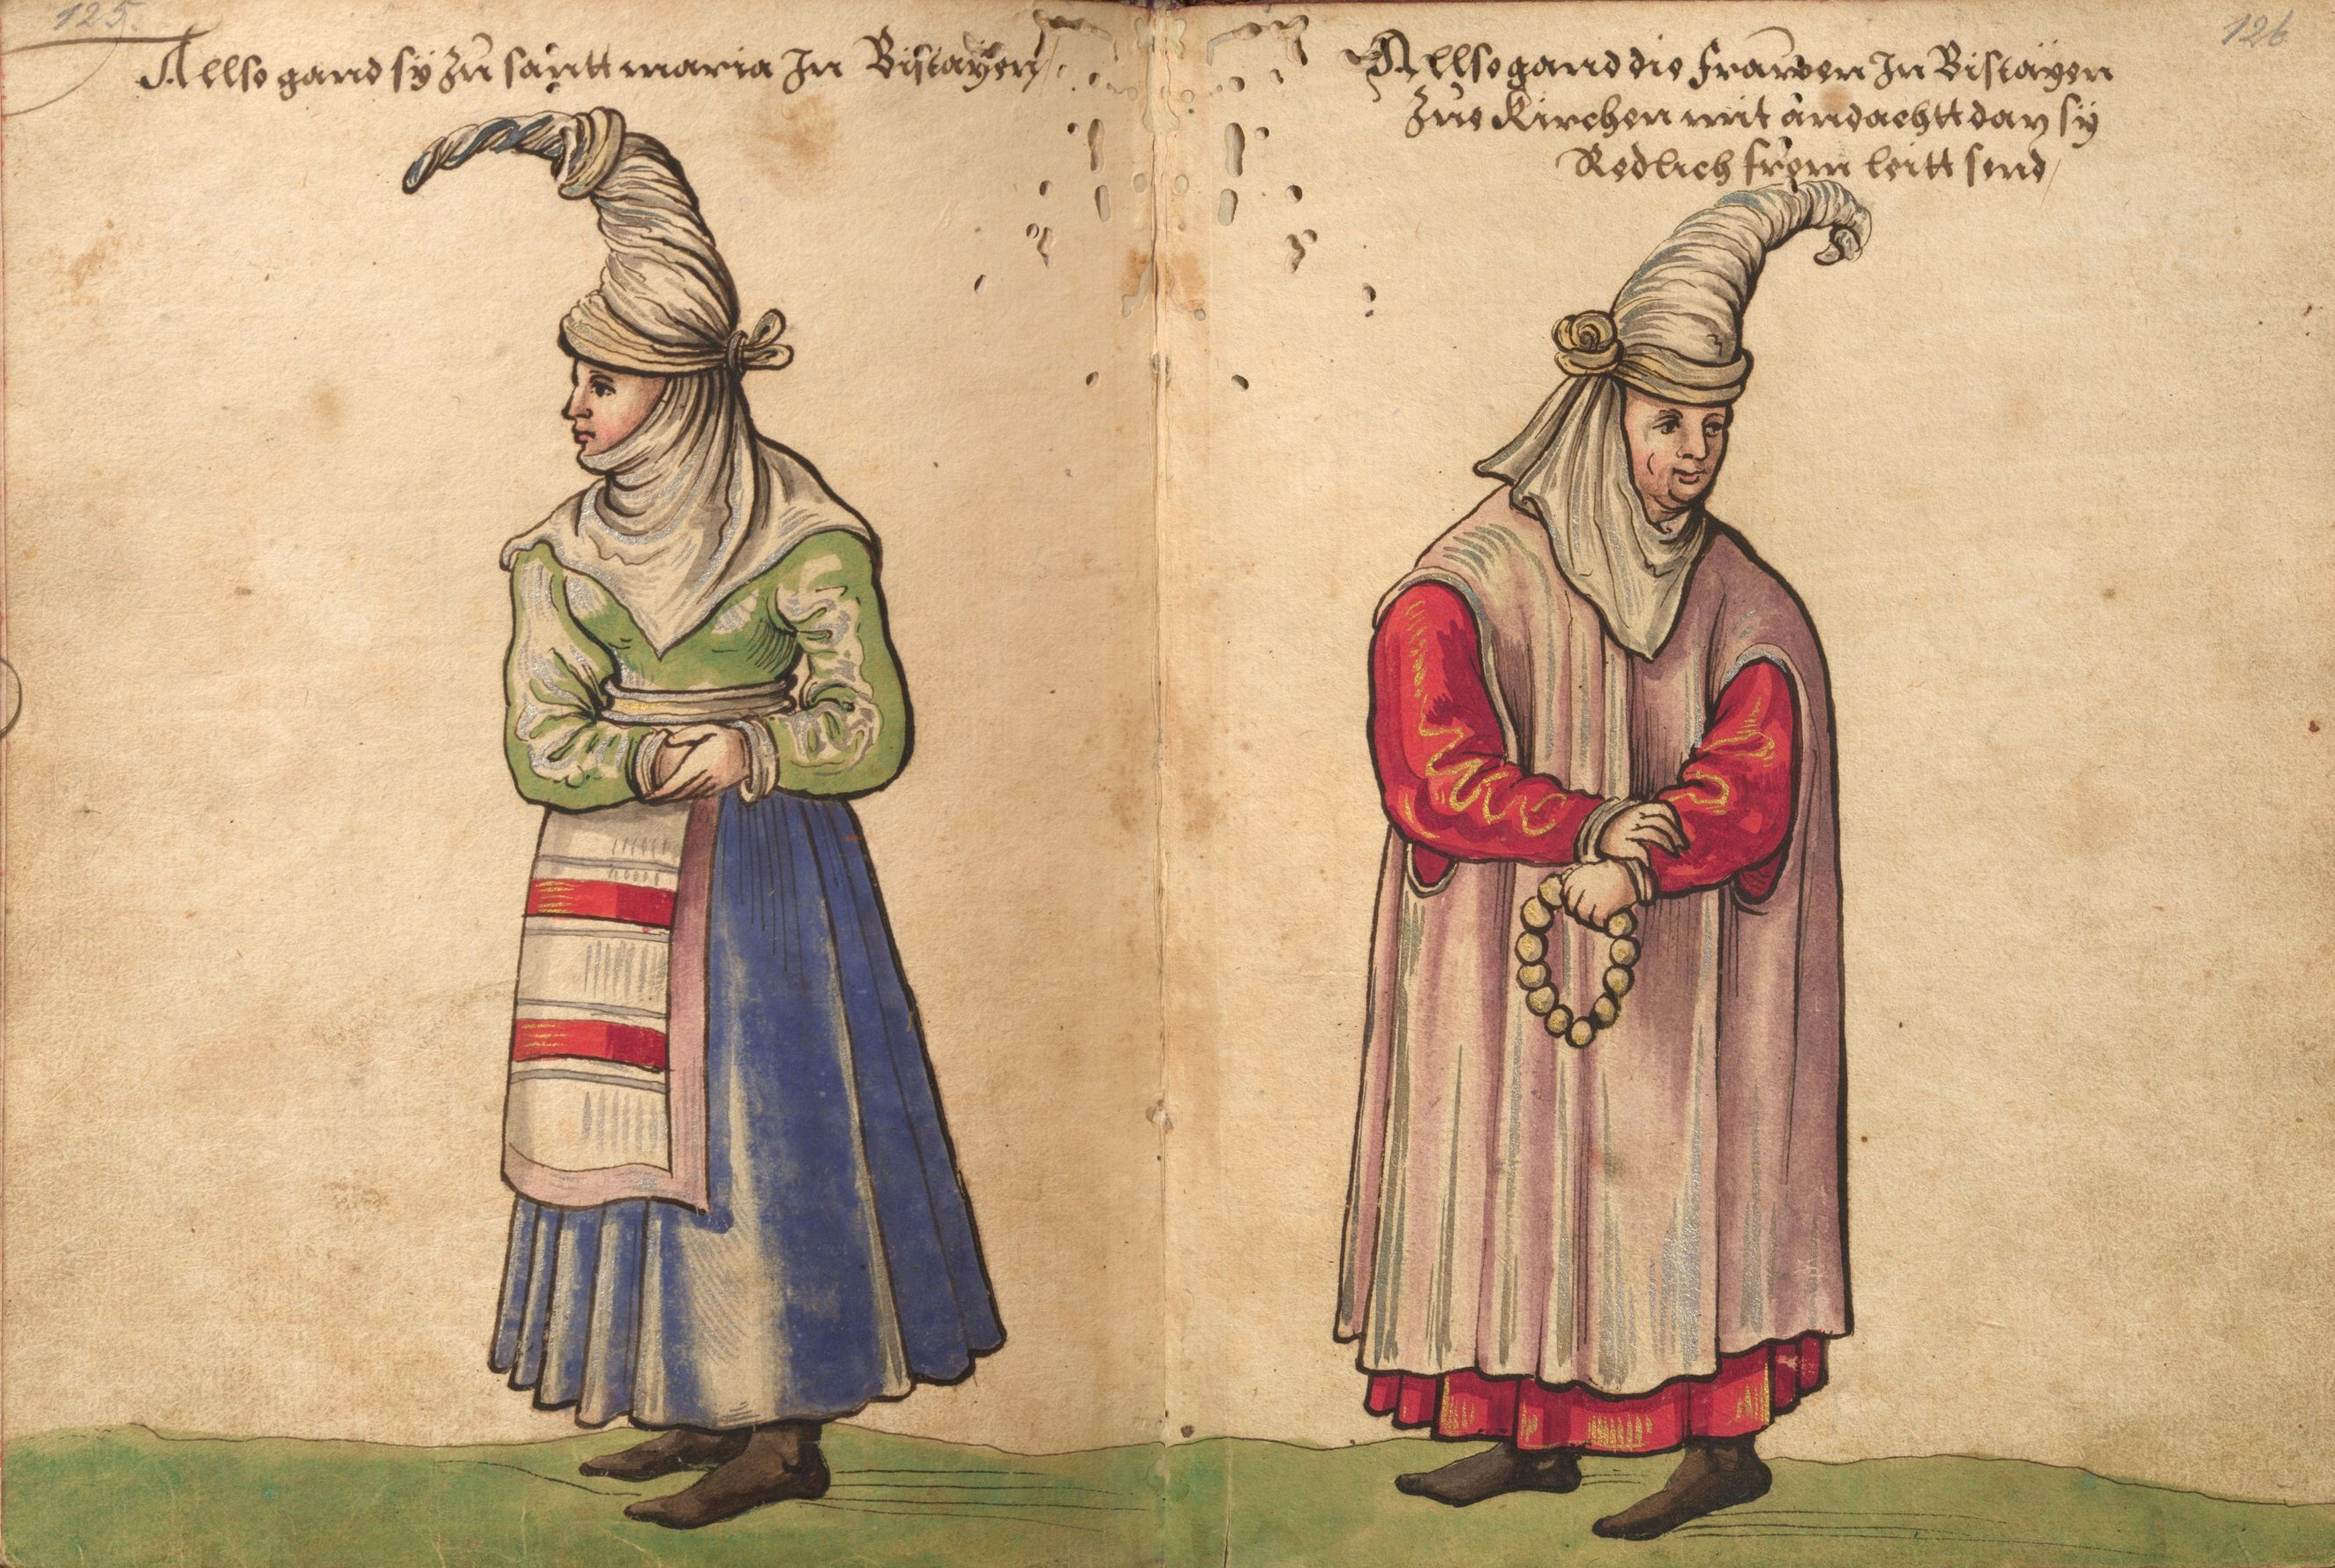 125.
Allso gand sÿ zu santt maria In Biscaÿen
126
Allso gand die frawen In Biscäyen
Zue Kirchen mit andachtt dan sÿ
Redlich from leitt send